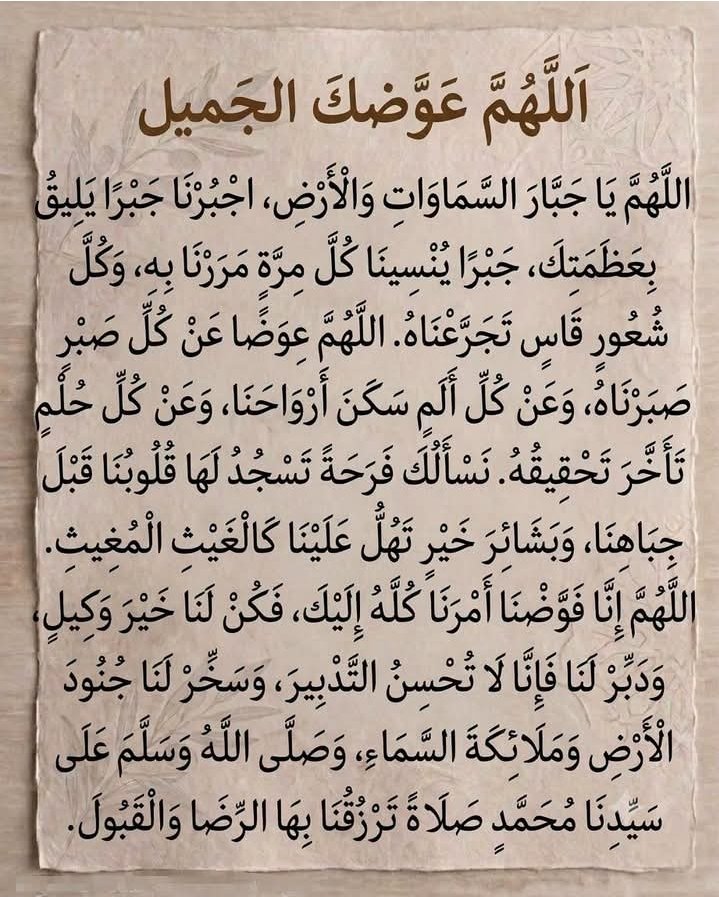 اَللَّهُمَّ عَوَّضكَ الجَميل
اللَّهُمَّ يَا جَبَّارَ السَّمَاوَاتِ وَالْأَرْضِ، اجْبُرْنَا جَبْرًا يَلِيقُ
بِعَظَمَتِكَ، جَبْرًا يُنْسِينَا كُلَّ مِرَّةٍ مَرَرْنَا بِهِ، وَكُلَّ
شُعُورٍ قَاسٍ تَجَرَّعْنَاهُ. اللَّهُمَّ عِوَضًا عَنْ كُلِّ صَبْرٍ
صَبَرْنَاهُ، وَعَنْ كُلِّ أَلَمٍ سَكَنَ أَرْوَاحَنَا، وَعَنْ كُلِّ حُلْمٍ
تَأَخَّرَ تَحْقِيقُهُ. نَسْأَلُكَ فَرَحَةً تَسْجُدُ لَهَا قُلُوبُنَا قَبْلَ
جِبَاهِنَا، وَبَشَائِرَ خَيْرٍ تَهُلُّ عَلَيْنَا كَالْغَيْثِ الْمُغِيثِ.
اللَّهُمَّ إِنَّا فَوَّضْنَا أَمْرَنَا كُلَّهُ إِلَيْكَ، فَكُنْ لَنَا خَيْرَ وَكِيلٍ،
وَدَبِّرْ لَنَا فَإِنَّا لَا نُحْسِنُ التَّدْبِيرَ، وَسَخِّرْ لَنَا جُنُودَ
الْأَرْضِ وَمَلَائِكَةَ السَّمَاءِ، وَصَلَّى اللَّهُ وَسَلَّمَ عَلَى
سَيِّدِنَا مُحَمَّدٍ صَلَاةً تَرْزُقُنَا بِهَا الرِّضَا وَالْقَبُولَ.